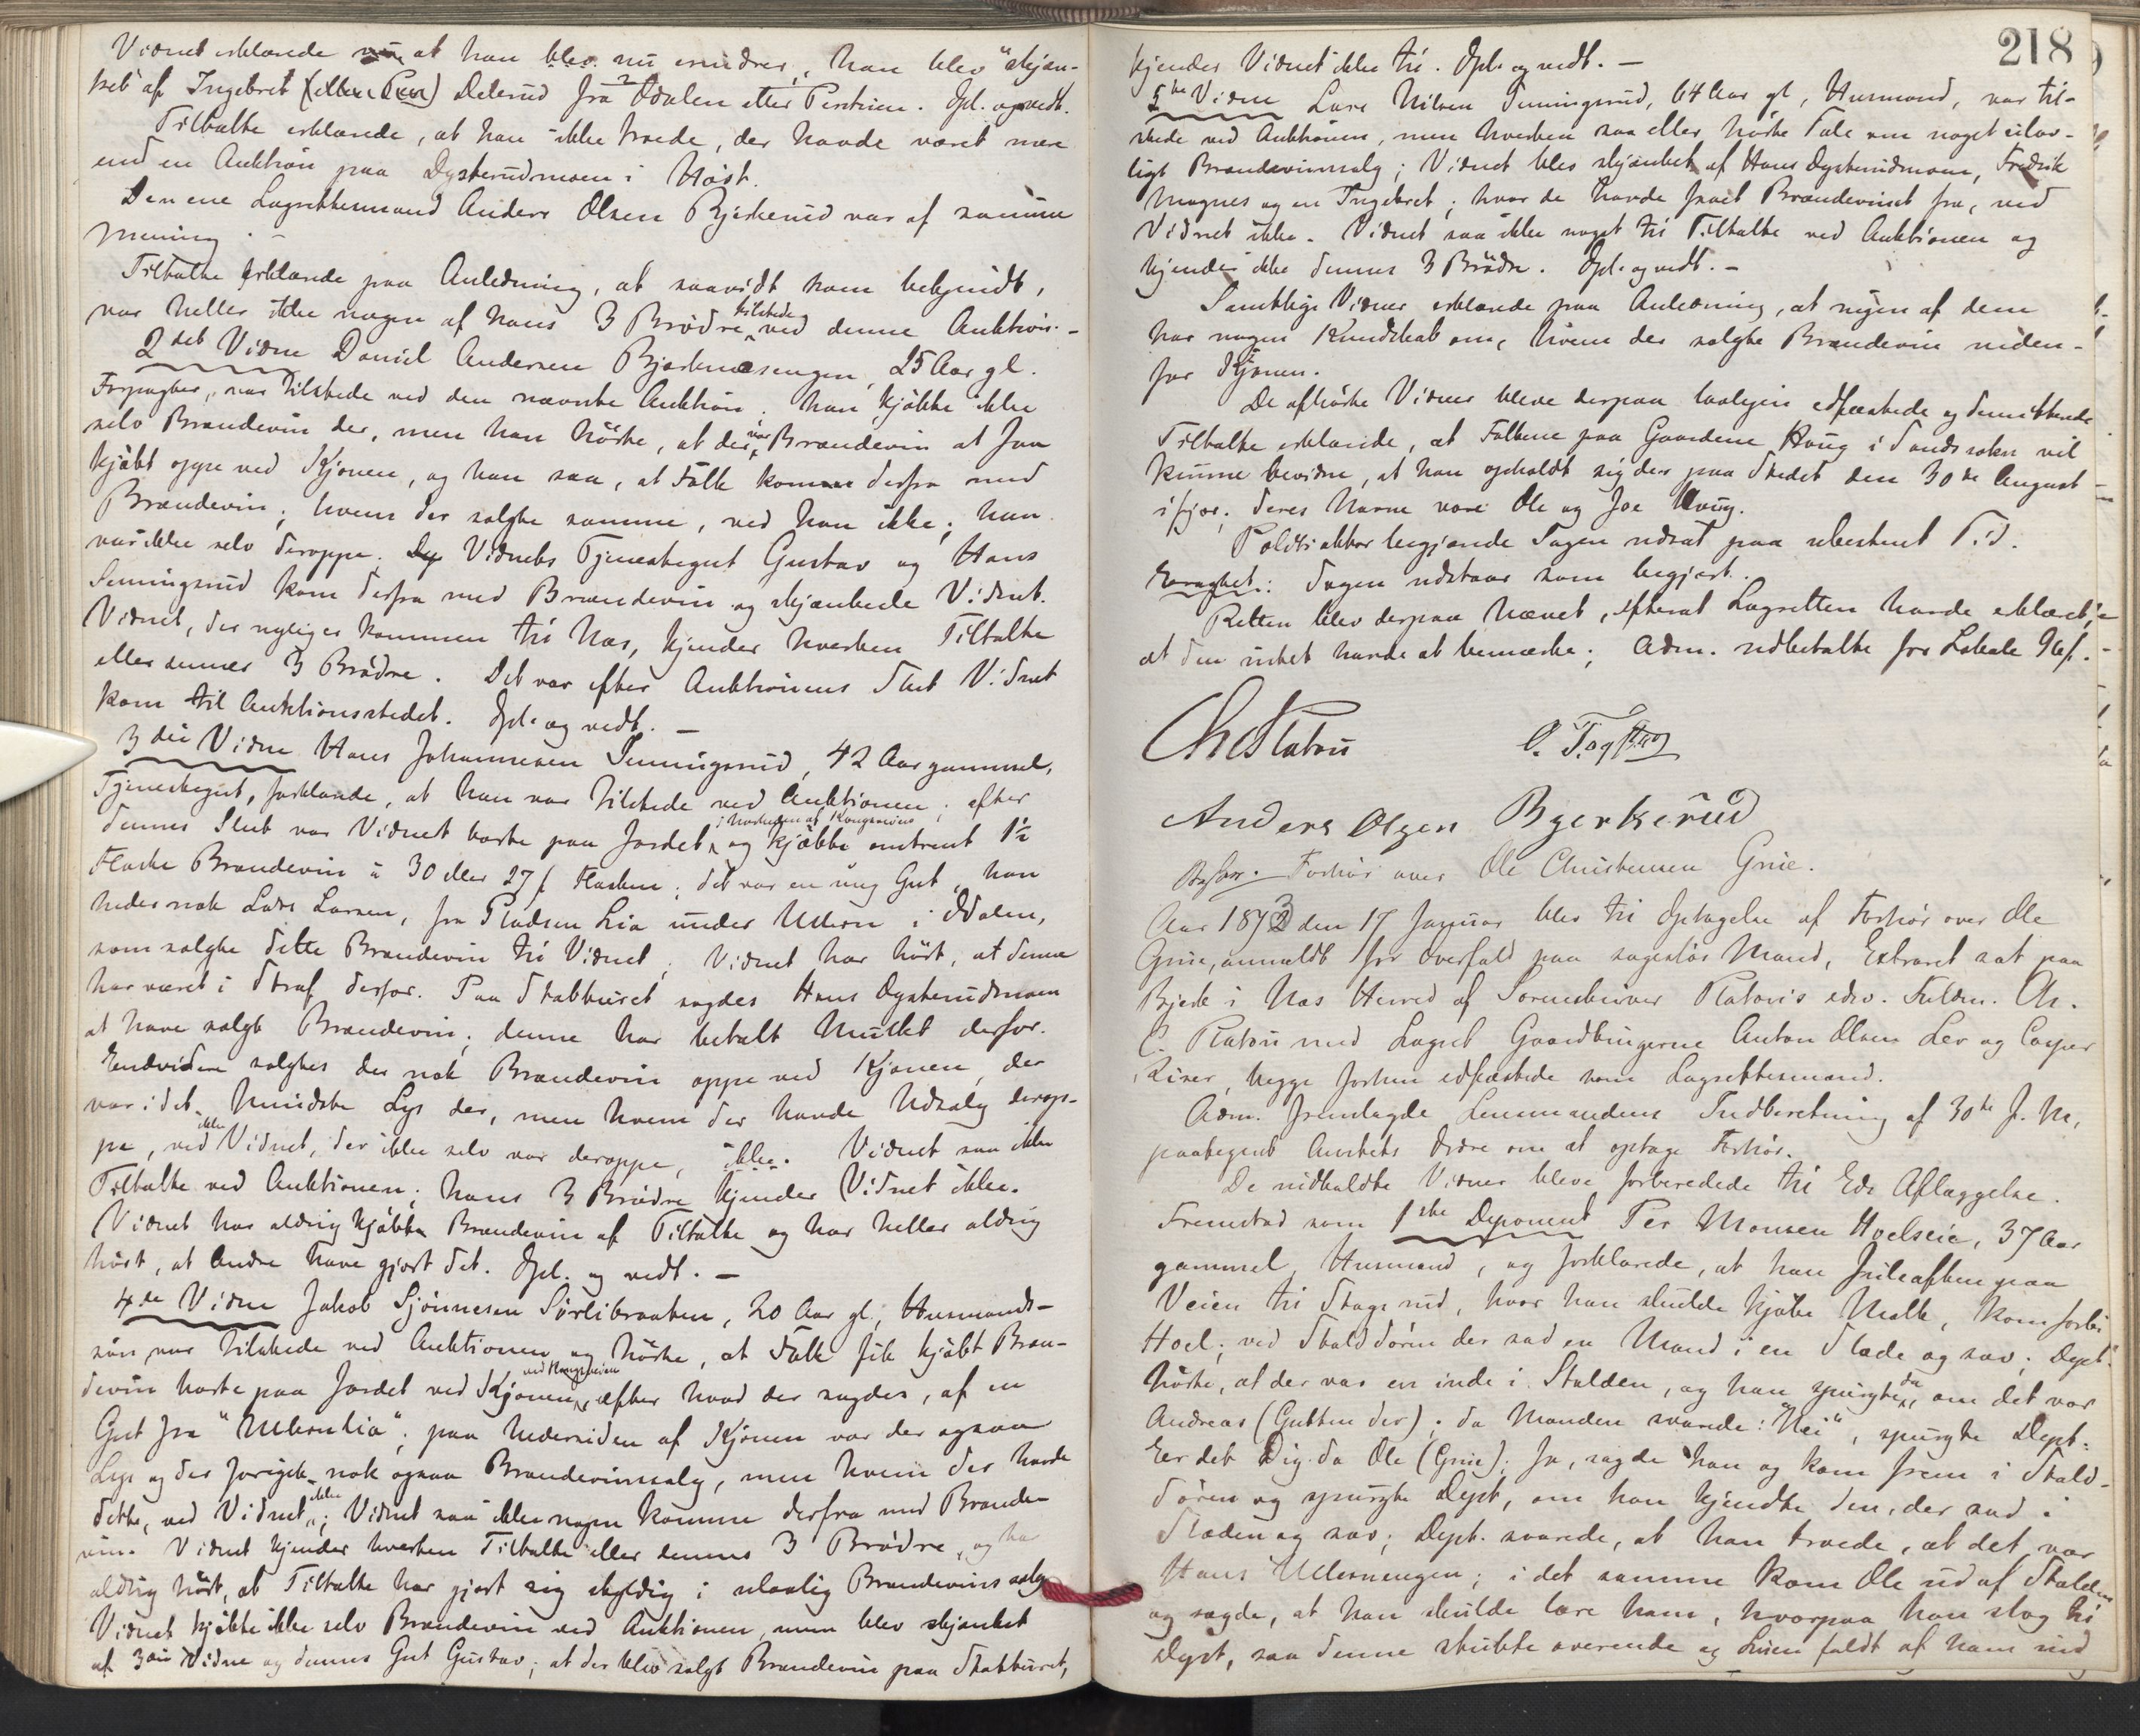 Vidnet erklærede at han blev nu erindrer, han blev "skjæn-
ket" af Ingebret (eller Peer) Delerud fra Odalen efter Auktionen. Opl. og vedt.
Tiltalte erklærede, at han ikke troede, der havde været mere
end en Auktion paa Dysterudmoen i Høst.
Den ene Lagrettesmand Anders Olsen Bjerkerud var af samme
Mening. -
Tiltalte erklærede paa Anledning, at saavidt ham bekjendt,
var heller ikke nogen af hans 3 Brødre tilstede ved denne Auktion. -
2det Vidne Daniel Andersen Bjerknæsengen, 25 Aar gl.
Forpagter, var tilstede ved den nævnte Auktion. Han kjøbte ikke
selv Brændevin der, men han hørte, at der var Brændevin at faa
kjøbt oppe ved Kjonen, og han saa, at Folk kom derfra med
Brændevin; hvem der solgte samme, ved han ikke; han
var ikke selv deroppe. Vidnets Tjenestegut Gustav og Hans
Henningsrud kom derfra med Brændevin og skjænkede Vidnet.
Vidnet, der nyligen kommen til Næs, kjender hverken Tiltalte
eller dennes 3 Brødre. Det var efter Auktionens Slut Vidnet
kom til Auktionsstedet. Opl. og vedt. -
3die Vidne Hans Johannesen Henningsrud, 42 Aar gammel,
Tjenestegut, forklarede, at han var tilstede ved Auktionen; efter
dennes Slut var Vidnet borte paa Jordet i Nærheden af Kongeveien og kjøbte omtrent 1½
Flaske Brændevin à 30 eller 27 ß Flasken; det var en ung Gut, han
heder nok Lars Larsen, fra Pladsen Lia under Ullern i Odalen,
som solgte dette Brændevin til Vidnet; Vidnet har hørt, at denne
har været i Straf derfor. Paa Stabburet sagdes Hans Dysterudmoen
at have solgt Brændevin; denne har betalt Mulkt derfor.
Endvidere solgtes der nok Brændevin oppe ved Kjonen, der
var i det Mindste Lys der, men hvem der havde Udsalg derop-
pe, ved ikke Vidnet, der ikke selv var deroppe, ikke. Vidnet saa ikke
Tiltalte ved Auktionen; hans 3 Brødre kjender Vidnet ikke.
Vidnet har aldrig kjøbt Brændevin af Tiltalte og har heller aldrig
hørt, at Andre have gjort det. Opl. og vedt. -
4de Vidne Jakob Sjønnesen Sørlibraaten, 20 Aar gl., Husmands-
søn, var tilstede ved Auktionen og hørte, at Folk fik kjøbt Bræn-
devin borte paa Jordet ved Kjonen ved Kongeveien, efter hvad der sagdes, af en
Gut fra "Ullernlia"; paa Nedersiden af Kjonen var der ogsaa
Lys og der foregik nok ogsaa Brændevinssalg, men hvem der havde
dette, ved Vidnet ikke; Vidnet saa ikke nogen komme derfra med Brænde-
vin. Vidnet kjender hverken Tiltalte eller dennes 3 Brødre, og har
aldrig hørt, at Tiltalte har gjort sig skyldig i ulovlig Brændevinssalg
Vidnet kjøbte ikke selv Brændevin ved Auktionen, men blev skjænket
af 3die Vidne og dennes Gut Gustav; at der blev solgt Brændevin paa Stabburet,
218
kjender Vidnet ikke til. Opl. og vedt. -
5te Vidne Lars Nilsen Henningsrud, 64 Aar gl, Husmand, var til-
stede ved Auktionen, men hverken saa eller hørte Tale om noget ulov-
ligt Brændevinssalg; Vidnet blev skjænket af Hans Dysterudmoen, Fredrik
Magnes og en Ingebret; hvor de havde faaet Brændevinet fra, ved
Vidnet ikke. Vidnet saa ikke noget til Tiltalte ved Auktionen og
kjender ikke dennes 3 Brødre. Opl. og vedt. -
Samtlige Vidner erklærede paa Anledning, at ingen af dem
har nogen Kundskab om, hvem der solgte Brændevin neden-
for Kjonen.
De afhørte Vidner bleve derpaa lovligen edfæstede og demitterede
Tiltalte erklærede, at Folkene paa Gaardene Haug i Sands sokn vil
kunne bevidne, at han opholdt sig der paa Stedet den 30te August
ifjor; deres Navne vare Ole og Joe Haug.
Politiaktor begjærede Sagen udsat paa ubestemt Tid.
Eragtet: Sagen udstaar som begjært.
Retten blev derpaa hævet, efterat Lagretten havde erklæret,
at den intet havde at bemærke; Adm. udbetalte for Lokale 96 ß.
Chr Platou
Anders Olsen Byerkerud
Forhør over Ole Christensen Grue.
Aar 1873 den 17 Januar blev til Optagelse af Forhør over Ole
Grue, anmeldt for Overfald paa sagesløs Mand, Extraret sat paa
Bjerke i Næs Herred af Sorenskriver Platou's edsv. Fuldm. Ch.
C. Platou med Lagret Gaardbrugerne Anton Olsen Ler og Casper
, begge forhen edfæstede som Lagrettesmænd.
Adm. fremlagde Lensmandens Indberetning af 30te f. M.,
paategnet Amtets Ordre om at optage Forhør.
De indkaldte Vidner bleve forberedede til Eds Aflæggelse.
Fremstod som 1ste Deponent Per Monsen Hoelseie, 37 Aar
gammel, Husmand, og forklarede, at han Juleaften paa
Veien til Skogsrud, hvor han skulde kjøbe Melk, kom forbi
Hoel; ved Stalddøren der sad en Mand i en Slæde og sov; Dept.
hørte, at der var en inde i Stalden, og han spurgte da, om det var
Andreas (Gutten der); da Manden svarede: "Nei", spurgte Dept:
Er det Dig da Ole (Grue); Ja, sagde han og kom frem i Stald-
døren og spurgte Dept, om han kjendte den, der sad i
Slæden og sov; Dept. svarede, at han troede, at det var
Hans Ullernengen; i det samme kom Ole ud af Stalden
og sagde, at han skulde lære ham, hvorpaa han slog til
Dept, saa denne stubte overende og Luen faldt af ham ind